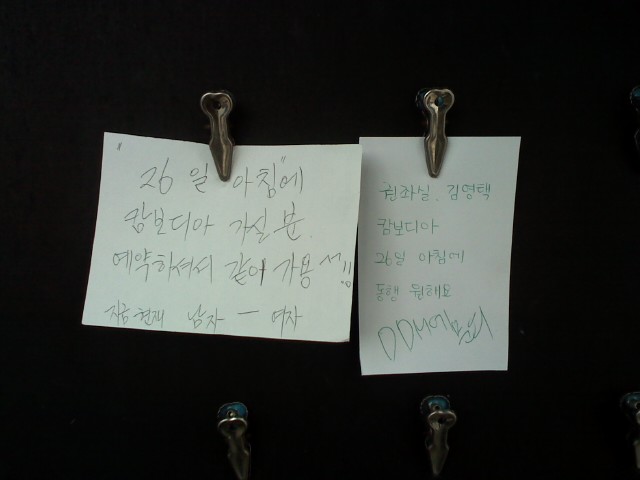 "26일 아침"에
캄보디아 가실 분.
예약하셔서 같이 가용
지금 현재 남자 — 여자
권좌실, 김영택
캄보디아
26일 아침에
동행 원해요
DDM에